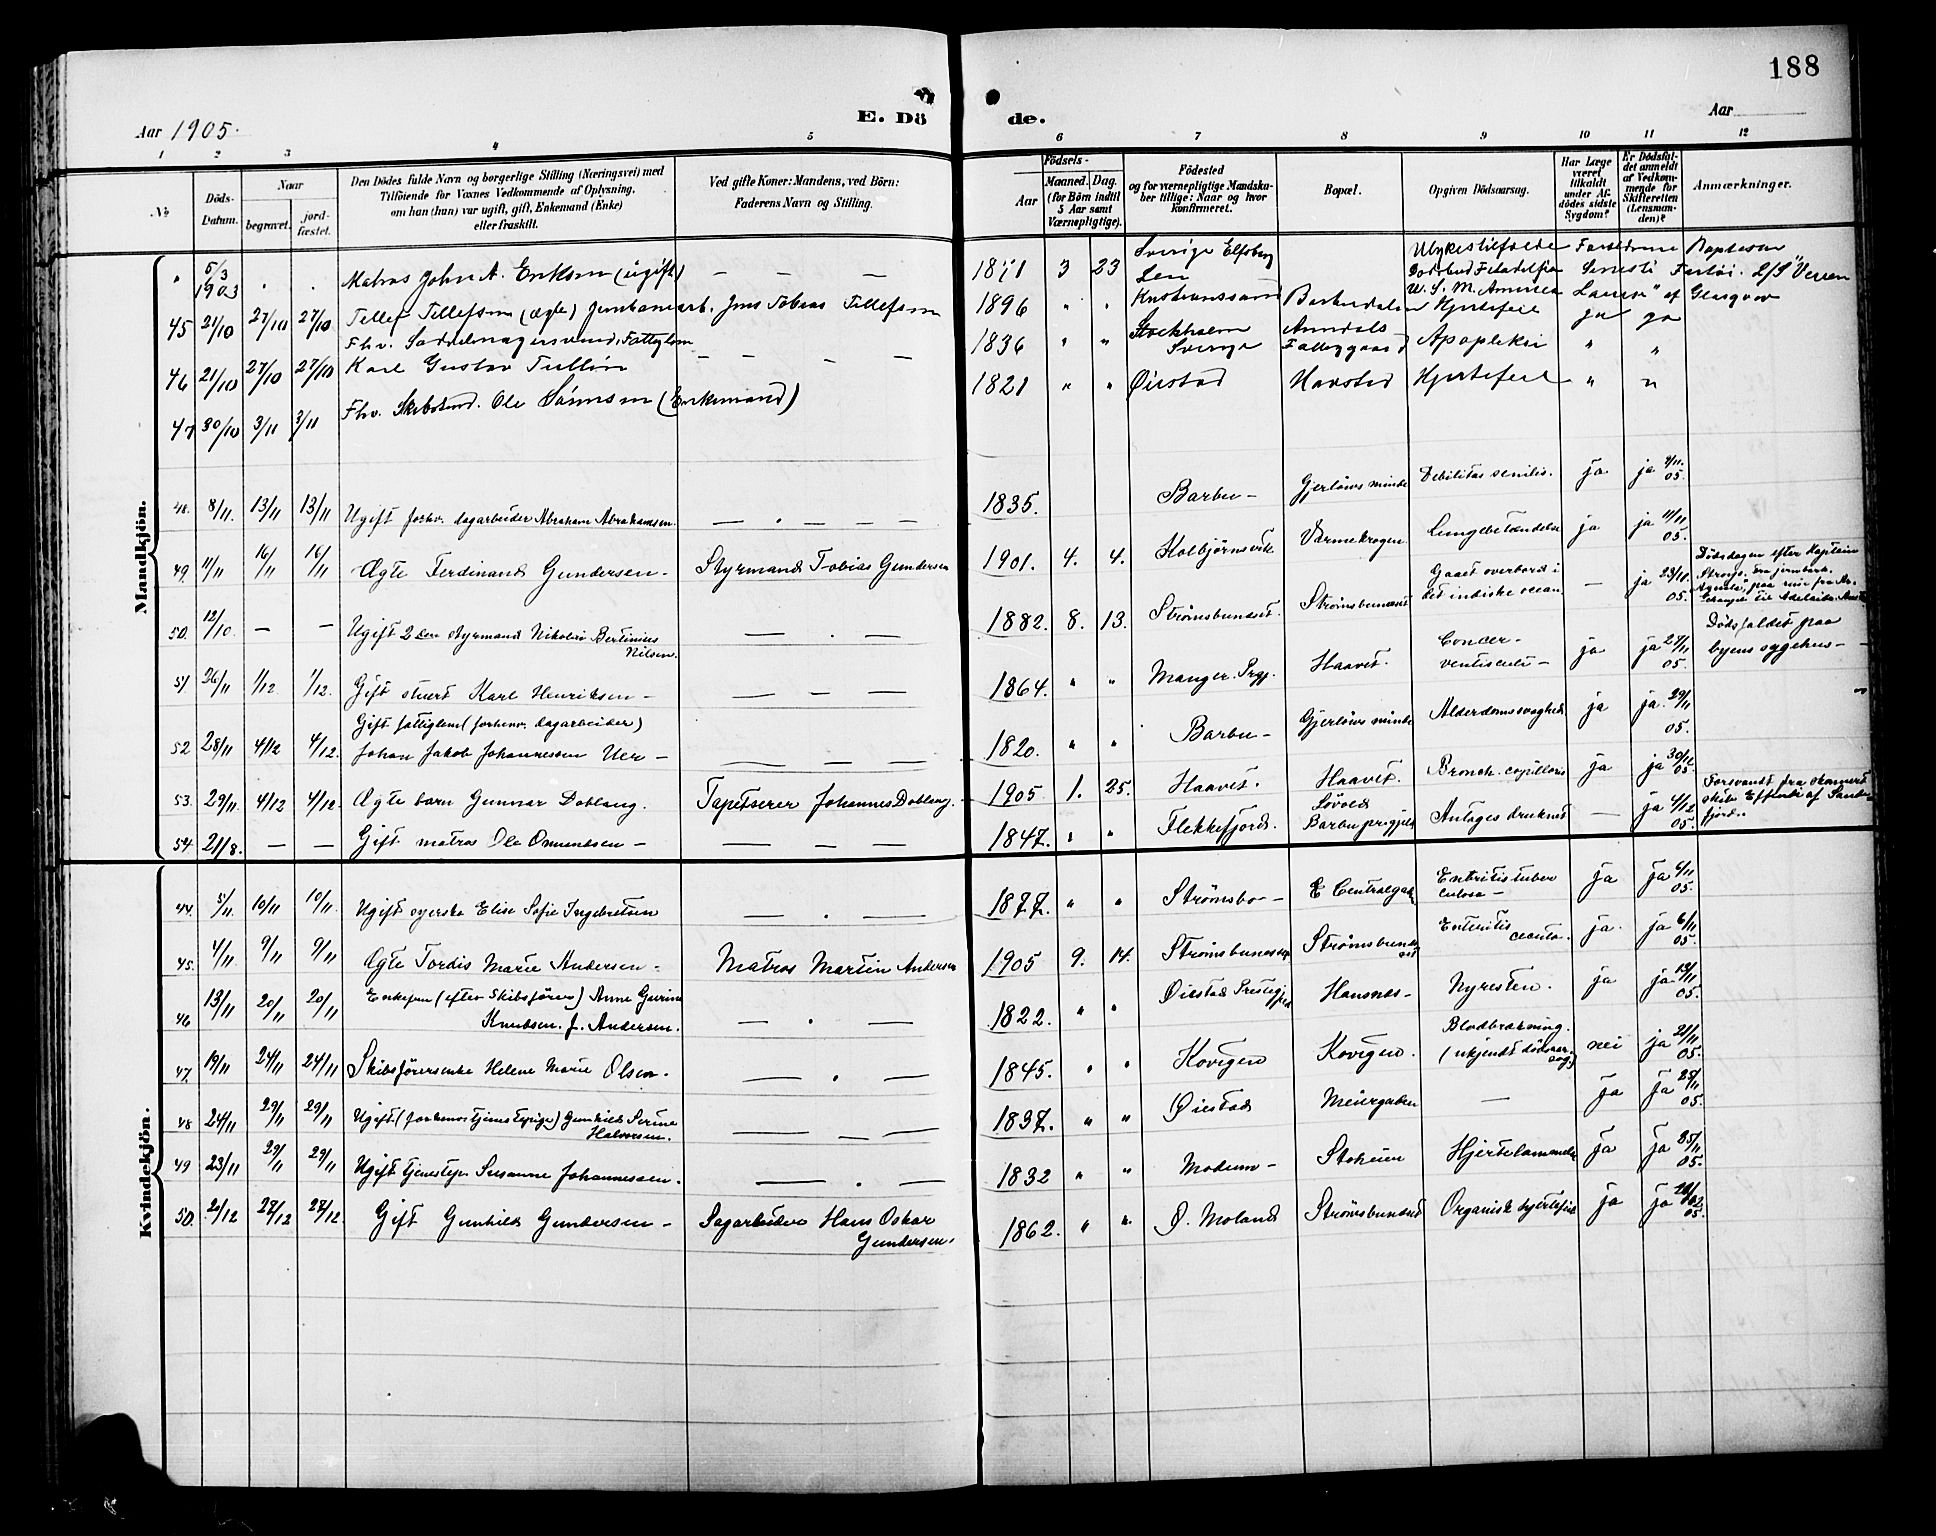 188
Aar 1905.
E. Dö
de.
Aar
1 2 3 4 5 6 7 8 9 10 11 12
№
Döds-
Datum.
Naar
begravet.
jord-
fæstet.
Den Dödes fulde Navn og borgerlige Stilling (Næringsvei) med
Tilföiende for Voxnes Vedkommende af Oplysning,
om han (hun) var ugift, gift, Enkemand (Enke)
eller fraskilt.
Ved gifte Koner: Mandens, ved Börn:
Faderens Navn og Stilling.
Födsels-
Aar
Maaned. Dag.
(for Börn indtil
5 Aar samt
Værnepligtige).
Födested
og for værnepligtige Mandska-
ber tillige: Naar og hvor
Konfirmeret.
Bopæl.
Opgiven Dödsaarsag.
Har Læge
været
tilkaldt
under Af-
dödes sidste
Sygdom?
Er Dödsfal-
det anmeldt
af Vedkom-
mende for
Skifteretten
(Lensman-
den)?
Anmærkninger.
Mandkjön.
" 5/3 1903 . . Matros John A. Eriksen (ugift) — — — 1871 3 23 Sverige Elfsborg Len
45 21/10 27/10 27/10 Tellef Tellefsen (ægte) Jernbanearb. Jens Tobias Tellefsen 1896 " . Kristianssand Barbudalen Hjertefeil ja ja
46 21/10 27/10 27/10 Fhv. Saddelmagersvend, Fattiglem
Karl Gustav Tullin — — — — 1836 " " Stockholm Sverige Arendals Fattiggaard Apopleksi " "
47 30/10 3/11 3/11 Fhv. Skibstmd. Ole Sørensen (Enkemand) 1821 " " Øiestad Havsted Hjertefeil " "
48. 8/11. 13/11 13/11 Ugift forhv. dagarbeider Abraham Abrahamsen. — . — — — 1835. Barbu — Gjerløws minde Debilitas senilis. ja ja 9/11. 05.
49. 11/11 16/11 16/11 Ægte Ferdinand Gundersen — Styrmand Tobias Gundersen 1901. 4. 4. Kolbjørnsvik Varmekrogen Lungebetændelse ja ja 11/11 05.
50. 12/10. — — Ugift 2den styrmand Nikolai Bertinius
Nilsen. — . — 1882. 8. 13. Strømsbuneset. Strømsbuneset Gaaet overbord i
det indiske ocean — ja 23/11. 05. Dødsdagen efter Kaptein
51 26/11 1/12 1/12. Gift stuert Karl Henriksen — — — — 1864. " " Manger. Prgj. Haavet. Cancer-
ventriculi — ja ja 27/11 05. Dødsfaldet paa
byens sygehus —
52 28/11 4/12 4/12. Gift fattiglem (forhenv. dagarbeider)
Johan Jakob Johannessen Uer — — — — 1820. " " Barbu — Gjerløws minde Alderdomssvaghed ja ja. 29/11 05.
53. 29/11. 4/12 4/12. Ægte barn Gunnar Doblaug. Tapetserer Johannes Doblaug. 1905 1. 25. Haavet. Haavet. Bronch. capillaris ja ja 30/11 05.
54. 21/8. — — Gift matros Ole Omundsen — — — — 1847. " " Flekkefjord. Barbu prgjeld Antages druknet — ja 4/12 05. Forsvandt fra skonnert
skib af Sande-
fjord.
Kvindekjön.
44. 5/11. 10/11 10/11. Ugift syerske Elise Sofie Ingebretsen — . — 1877. " " Strømsbo — E Centralgad Enteritis tuber
culosa — ja ja 6/11 05.
45. 4/11. 9/11 9/11. Ægte Tordis Marie Andersen — Matros Martin Andersen 1905 9. 14. Strømsbuneset Strømsbuneset Enteritis
acuta. ja. ja 6/11 05.
46 13/11 20/11 20/11 Enkefru (efter Skibsfører) Anne Gurine
Knudsen. f. Andersen. — . — 1822. " " Øiestad Prestegjeld Havsnes — Nyresten. ja ja 13/11 05.
47. 19/11 24/11 24/11 Skibsførerenke Helene Marie Olsen. — . — 1845. " " Kovigen Kovigen. Blodbrækning.
(ukjendt dødsaar-
sag) nei ja 21/11 05.
48 24/11 29/11 29/11 Ugift (forhenv. tjenestepige) Gunhild Serine
Halvorsen. — — — 1837. " " Øiestad Meiergaden — ja ja 25/11 05.
49 23/11 29/11 29/11 Ugift tjenestep. Susanne Johannessen. — . — 1832 " " Modum — Stoheien Hjertelammelse ja ja 25/11 05.
50. 21/12 27/12 27/12. Gift Gunhild Gundersen — Sagarbeider Hans Oskar
Gundersen. 1862. " " Ø. Moland Strømsbuneset Organisk hjertefeil ja ja 05.